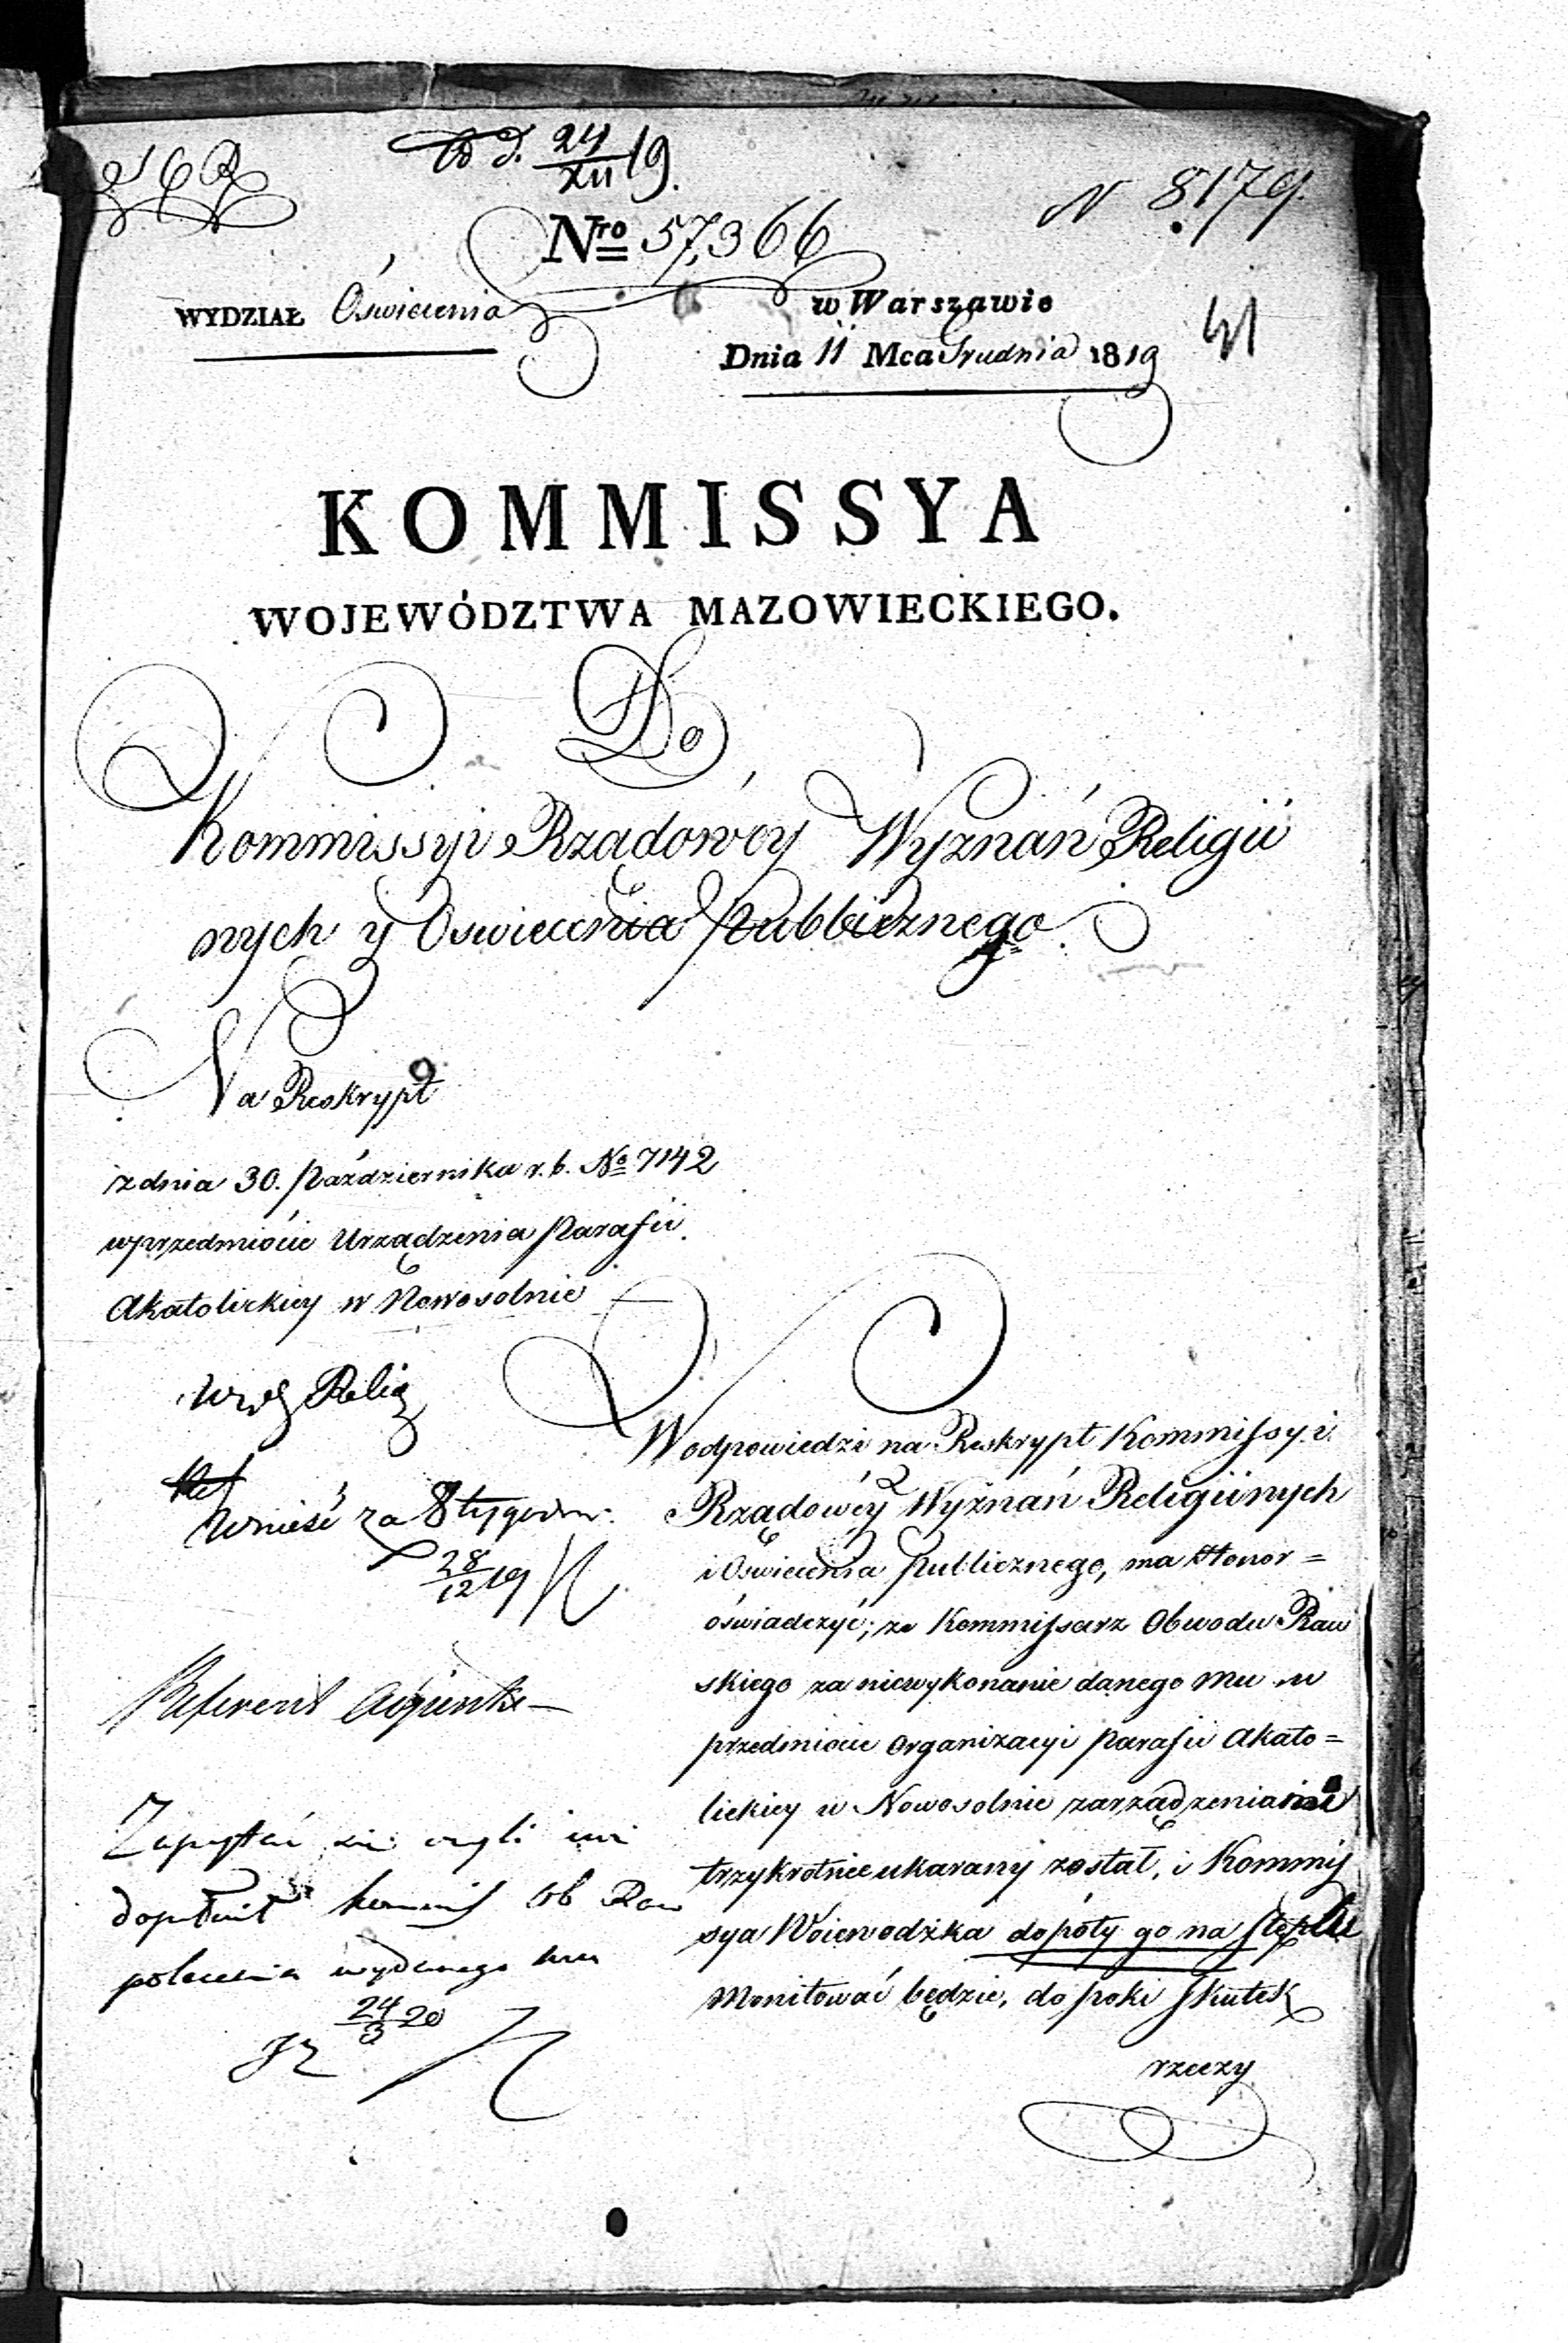 d. 24/XII 19.
N 8179.
Nro 57,366
WYDZIAŁ Oświecenia
w Warszawie
Dnia 11 Mca Grudnia 1819
41
KOMMISSYA
WOJEWÓDZTWA MAZOWIECKIEGO.
Do
Kommissyi Rządowéy Wyznań Religii
nych y Oswiecenia Publicznego
Na Reskrypt
z dnia 30. Października r. b. No 7142
w przedmiocie Urządzenia Parafii
Akatolickiey w Nowosolnie
Relig
Wnieść za 8 tygodn:
28/12 19
Referent
Zapytać się czyli
dopełnił kommis Ob Raw
polecenia wydanego mu
24/3 20
W odpowiedzi na Reskrypt Kommissyi
Rządowéy Wyznań Religiinych
i Oświecenia Publicznego, ma Honor=
oświadczyć; że Kommissarz Obwodu Raw
skiego za niewykonanie danego Mu w
przedmiocie Organizacyi Parafii Akato=
lickiey w Nowosolnie zarządzenia
trzykrotnie ukarany został, i Kommis
sya Woiewodzka dopóty go na
Monitować będzie, dopoki skutek
rzeczy